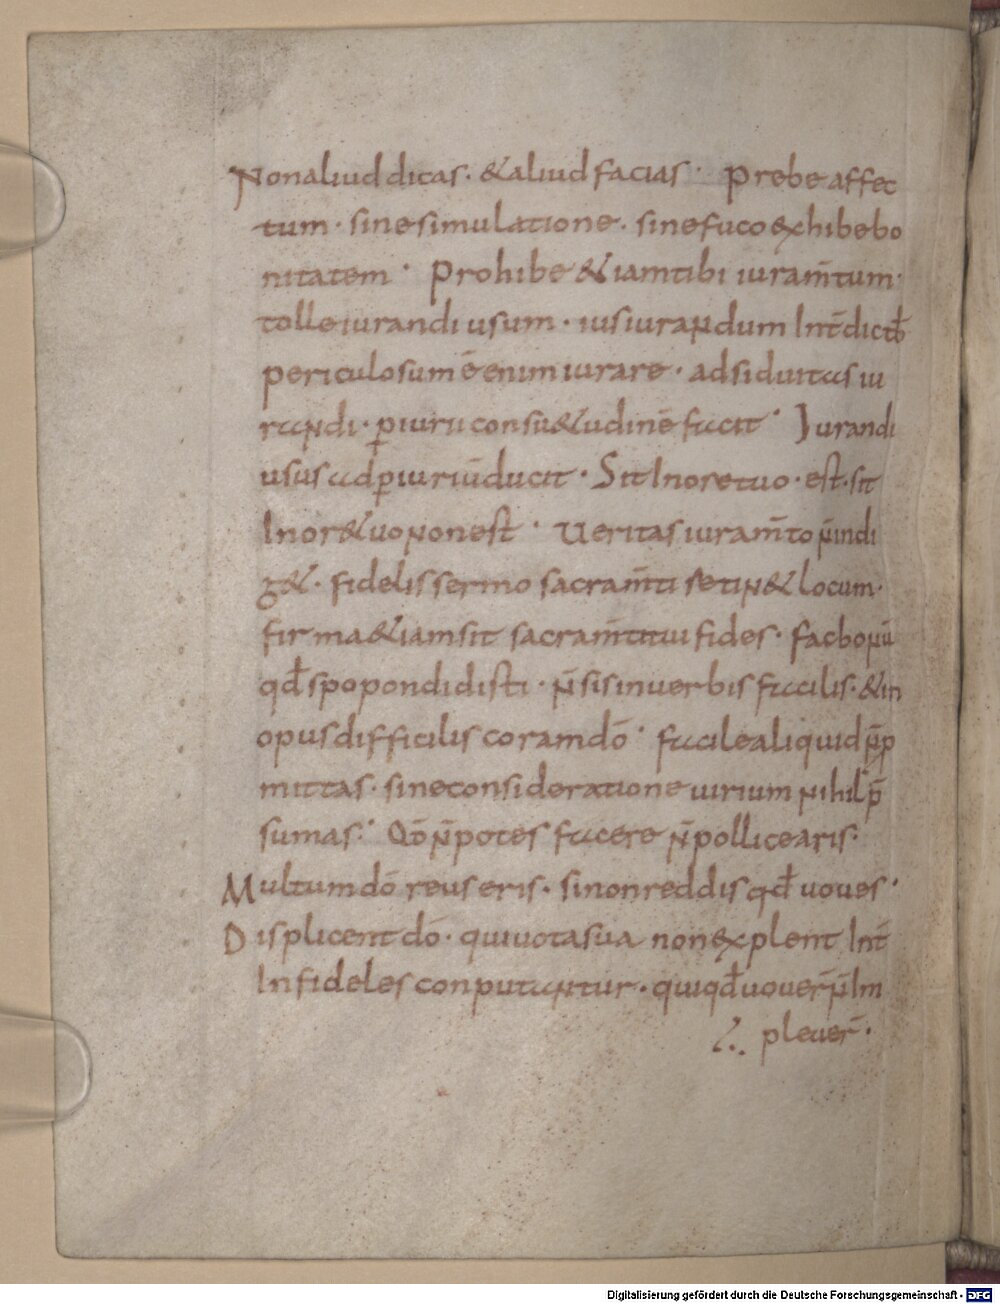 Nonaliud dicas · & aliud facias · Prebe affec
tum · sine simulatione · sine fuco exhibe bo
nitatem · Prohibe & iam tibi iuram̄tum ·
tolle iurandi usum · iusiurandum Int̄dictū
periculosum ē enim iurare · adsiduitas iu
randi · ꝑiurii consu&udinē facit · Iurandi
usus ad ꝑiuriū ducit · Sit In ore tuo · est · sit
In or& uo non est · Ueritas iuram̄to n̄ indi
g& · fidelis sermo sacram̄ti retin& locum ·
firma & iam sit sacram̄ti tui fides · fac bonū
qđ spopondidisti · n̄ sis in uerbis facilis · & in
opus difficilis coram dō · facile aliquid n̄ p̄
mittas · sine consideratione uirium nihil p̄
sumas · Qđ n̄ potes facere n̄ pollicearis ·
Multum dō reus eris · si non reddis qđ uoues ·
Displicent dō · qui uota sua non explent Int̄
Infideles conputantur · qui qđ uouer̄ n̄ Im
pleuer̄ ·
Digitalisierung gefördert durch die Deutsche Forschungsgemeinschaft - DFG